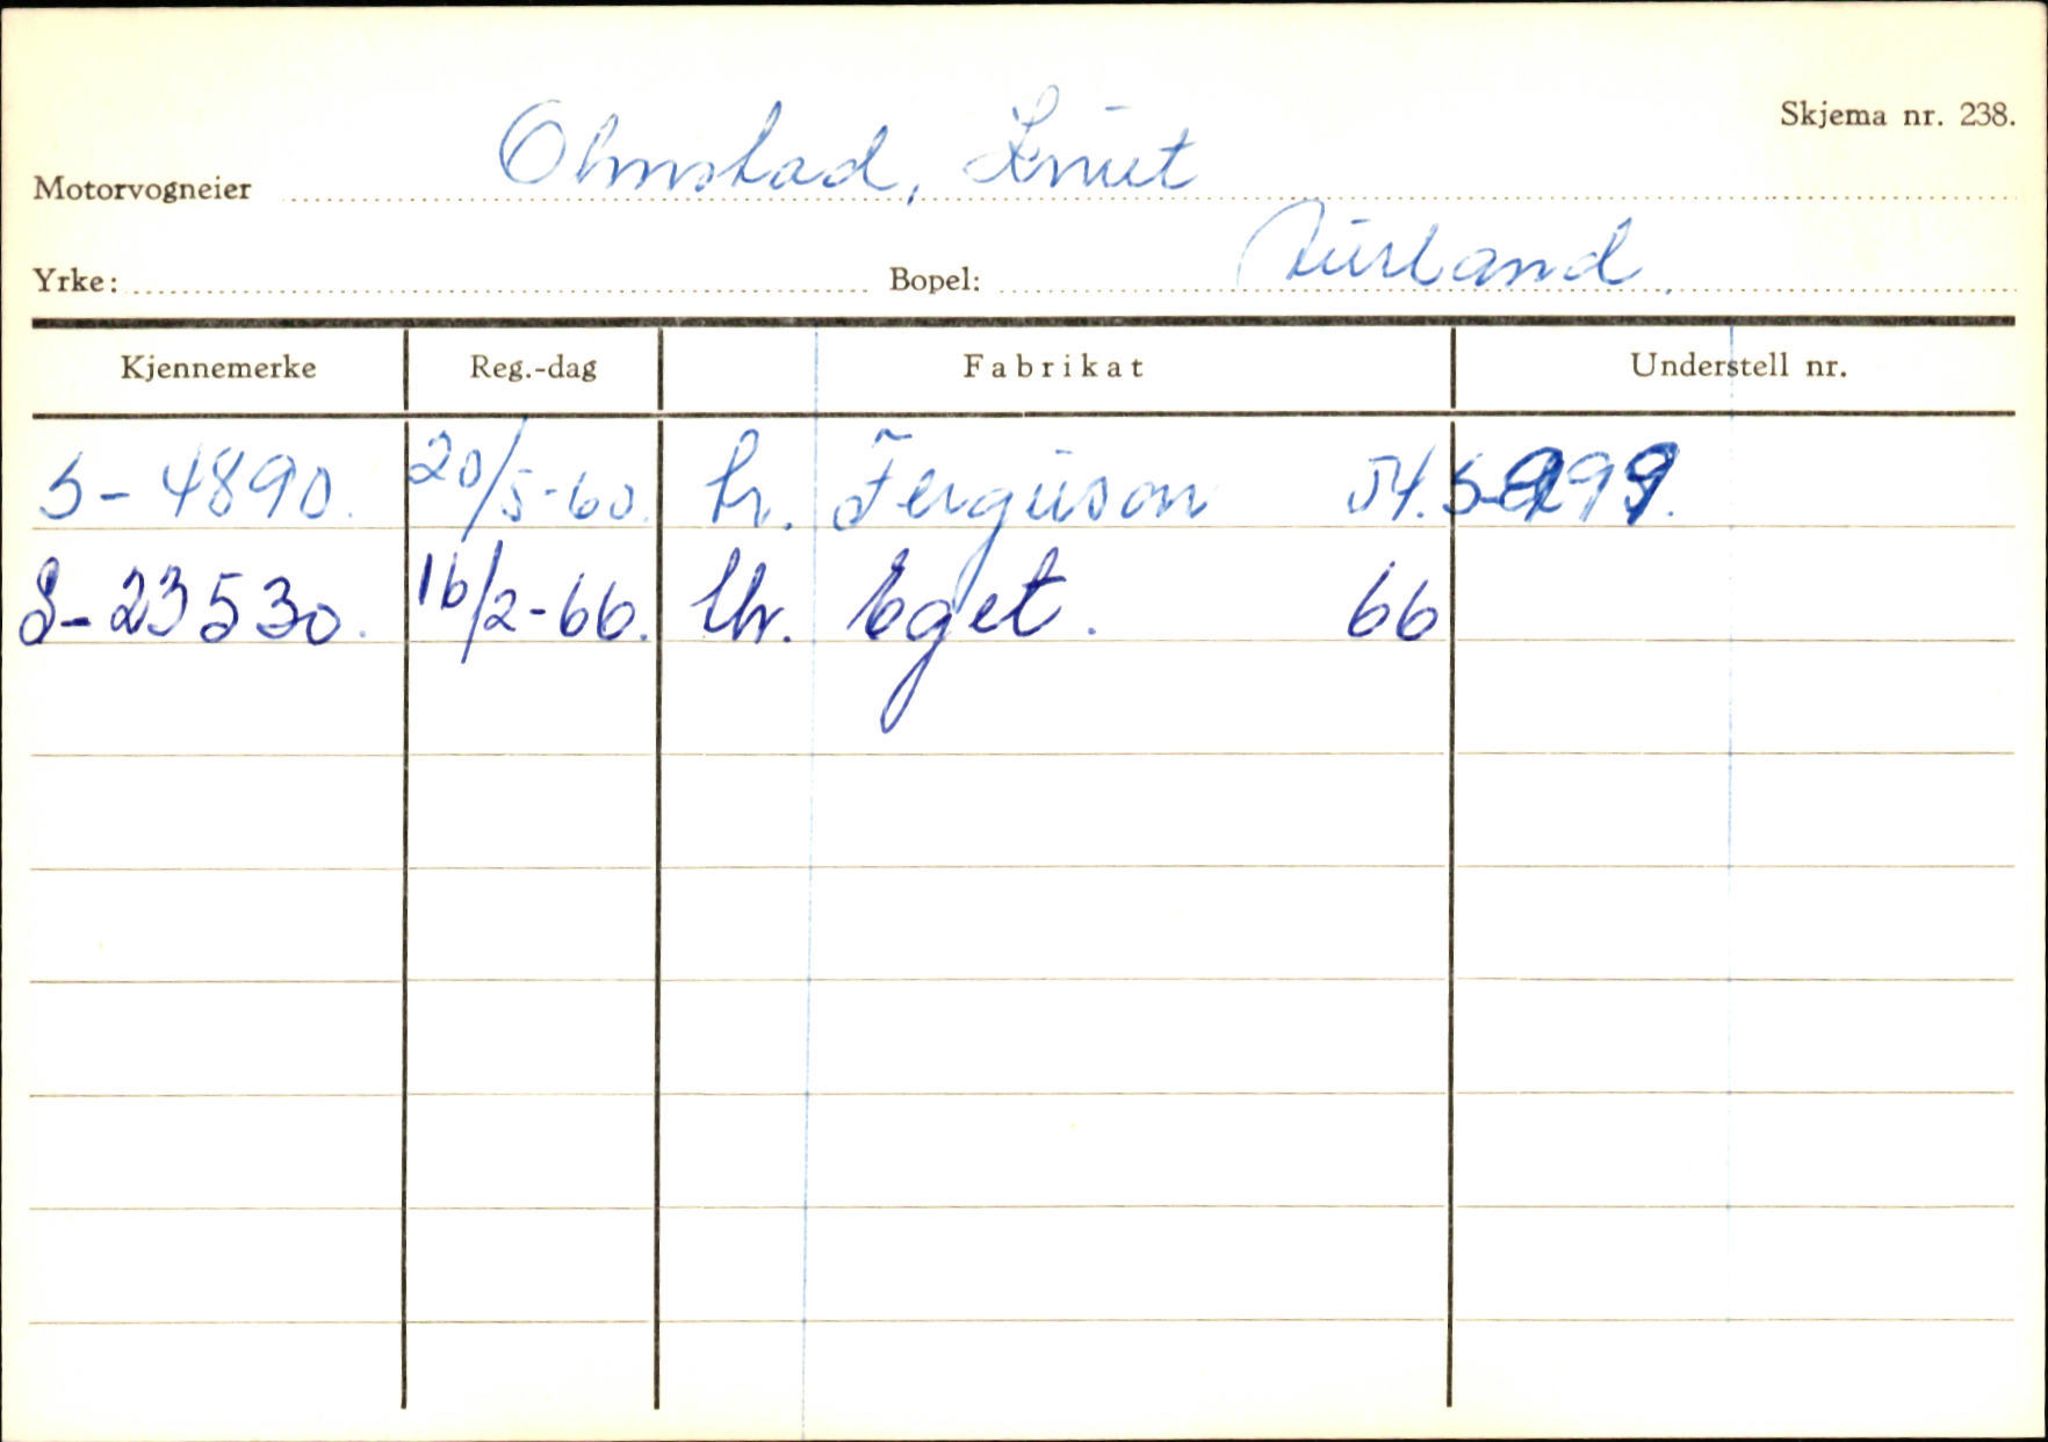 Skjema nr. 238.
Motorvogneier Ohnstad, Knut
Yrke: Bopel: Aurland.
Kjennemerke Reg.-dag Fabrikat Understell nr.
S-4890. 20/5-60. tr. Ferguson 54.
S-23530. 16/2-66. thr. Eget. 66